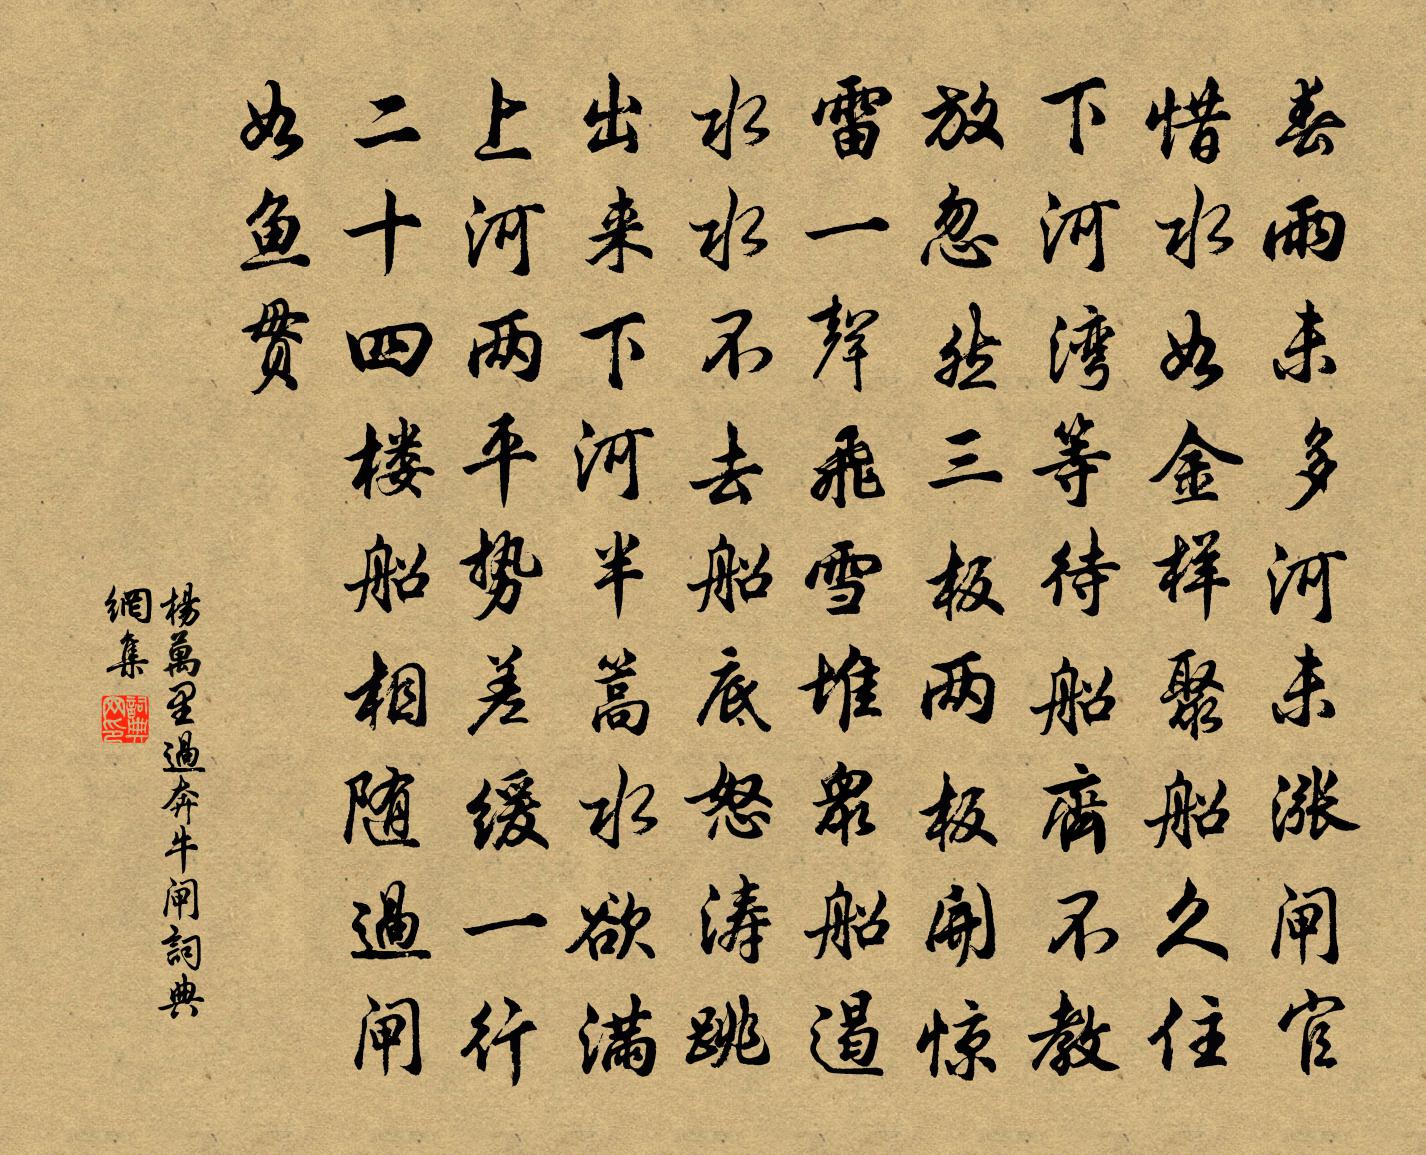 春雨未多河未涨闸官
惜水如金样聚船久住
下河湾等待船齊不教
放忽然三板两板開惊
雷一聲飛雪堆衆船遏
水水不去船底怒涛跳
出来下河半篙水欲满
上河两平势差缓一行
二十四楼船相随過闸
如鱼贯
楊萬里過奔牛闸詞典
網集
詞典网印